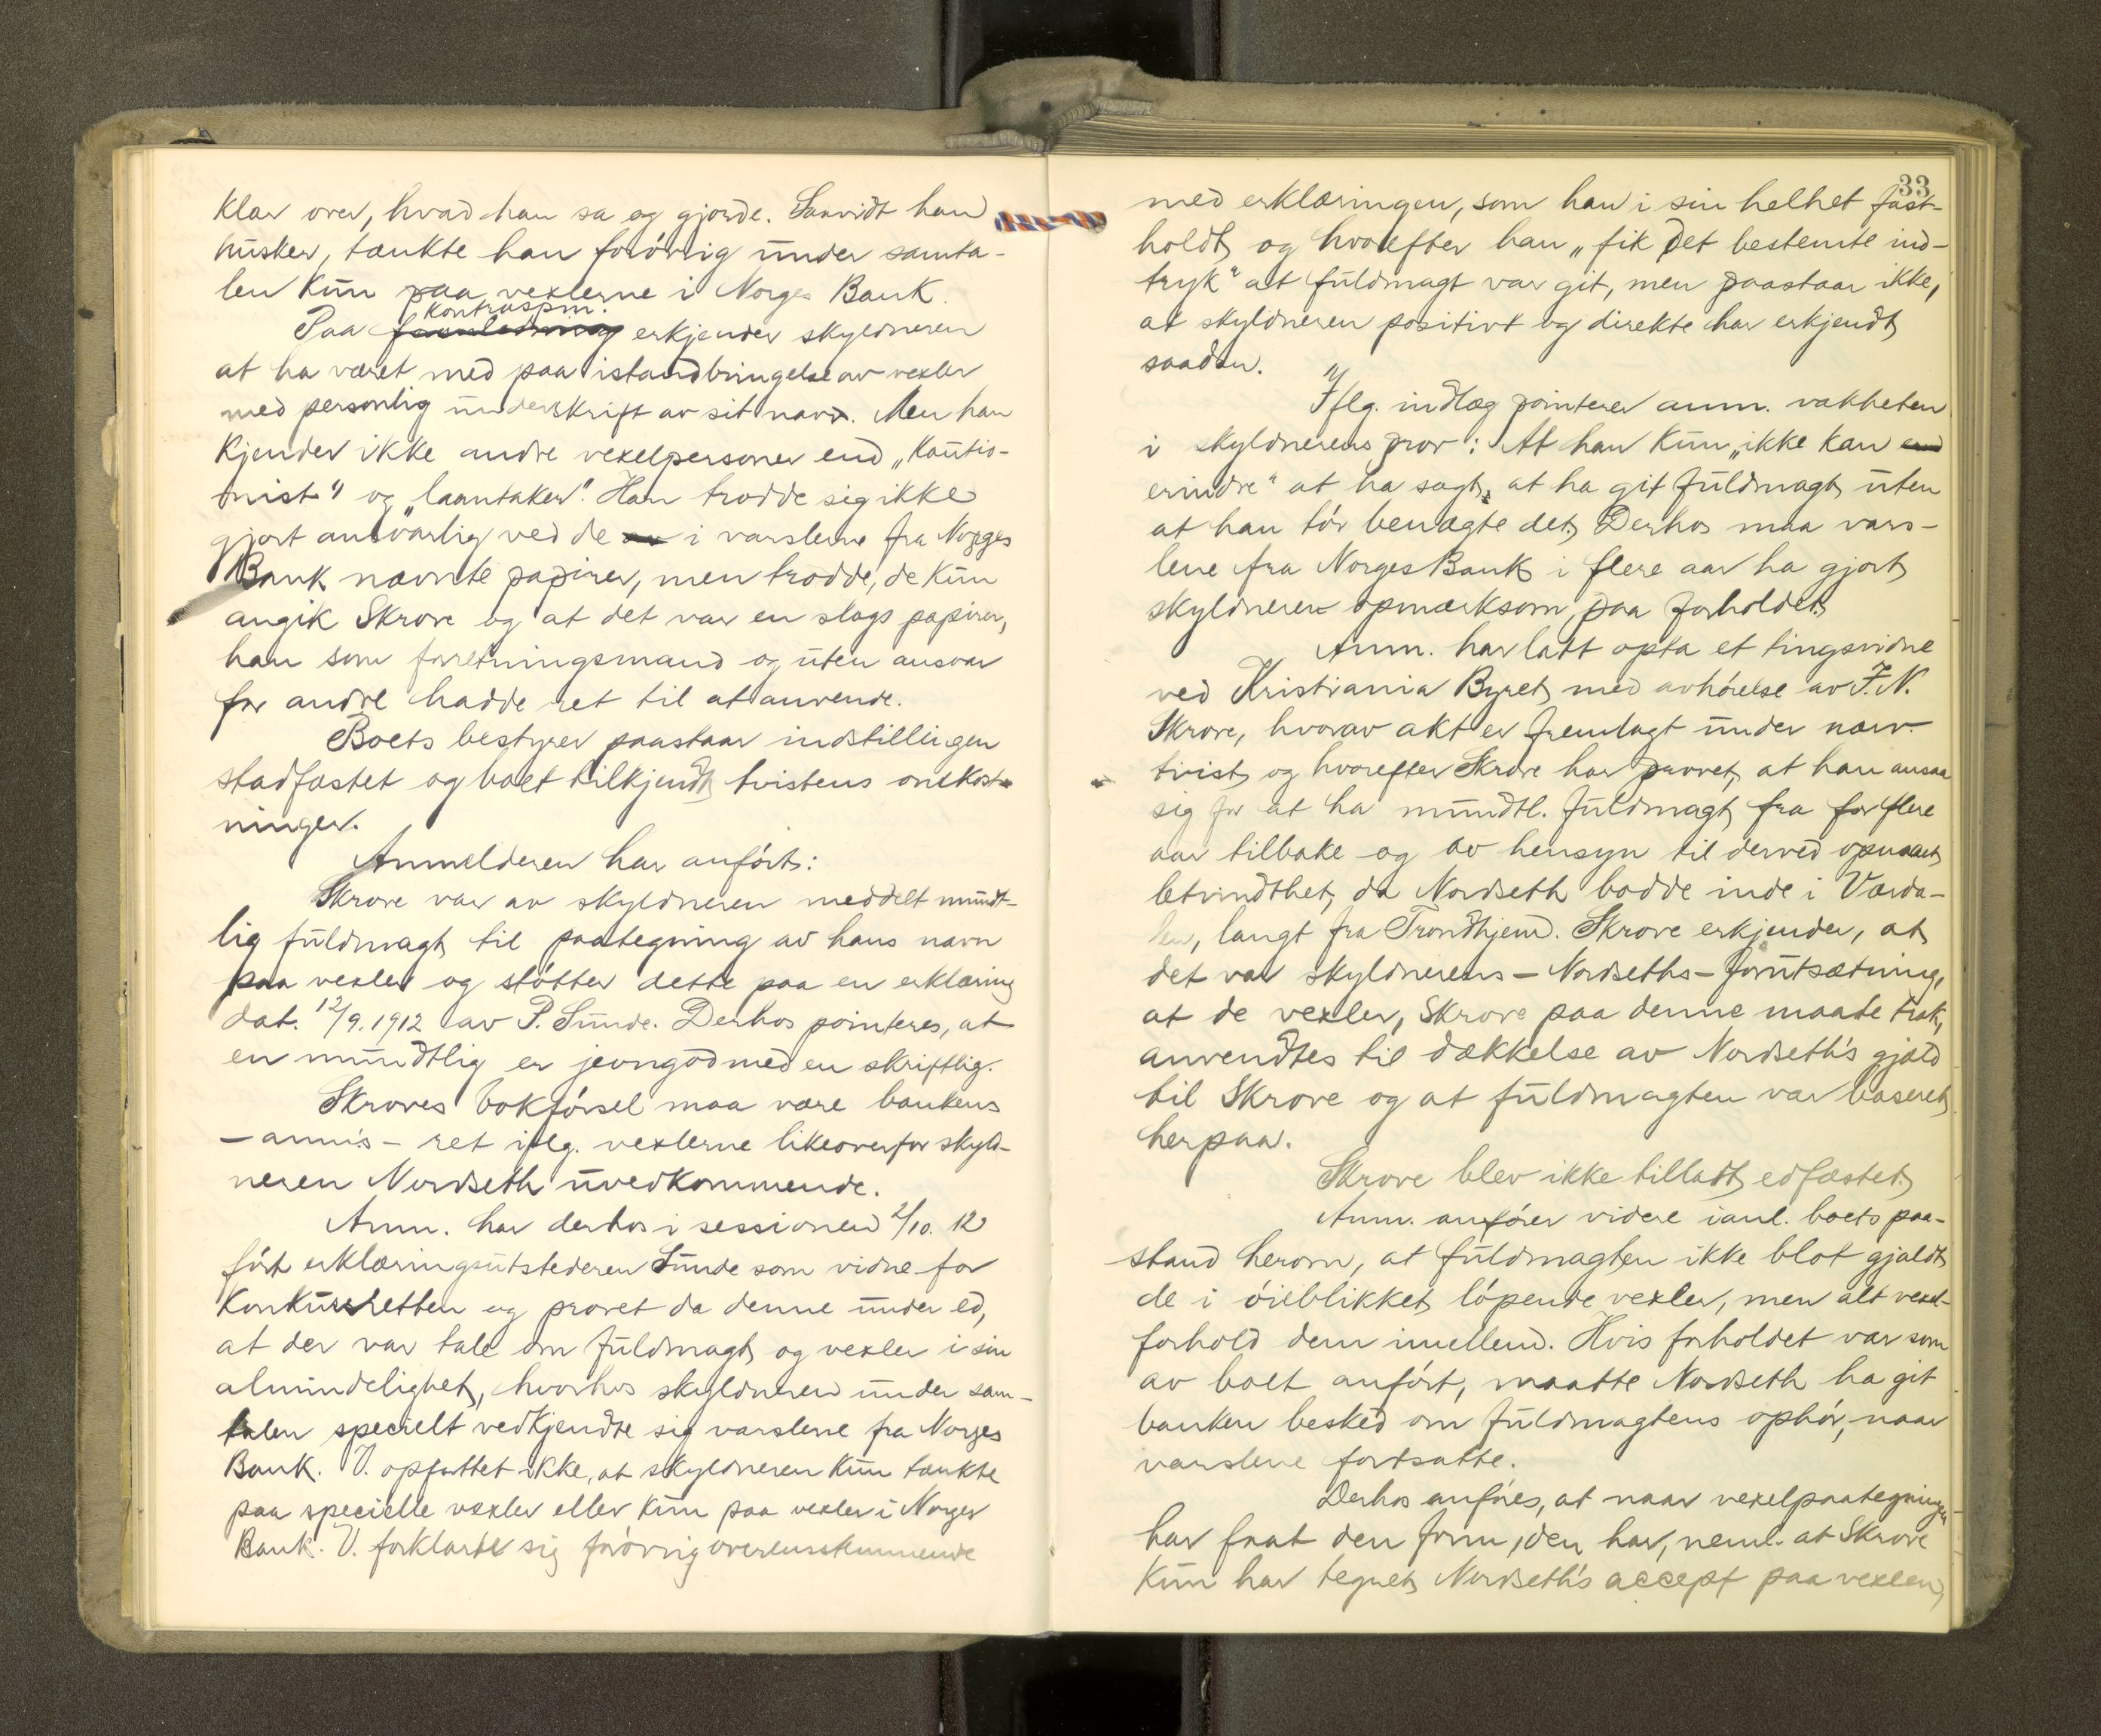 klar over, hvad han sa og gjorde. Saavidt han
husker, tænkte han forövrig under samta-
len kun paa vexlerne i Norges Bank.
kontraspm.
Paa erkjender skyldneren
at ha været med paa istandbringelse av vexler
med personlig underskrift av sit navn. Men han
kjender ikke andre vexelpersoner end „kautio-
nist" og „laantaker". Han trodde sig ikke
gjort ansvarlig ved de i varslerne fra Norges
Bank nævnte papirer, men trodde, de kun
angik Skrove og at det var en slags papirer,
han som forretningsmand og uten ansvar
for andre hadde ret til at anvende.
Boets bestyrer paastaar indstillingen
stadfæstet og boet tilkjendt tvistens omkost-
ninger.
Anmelderen har anfört:
Skrove var av skyldneren meddelt mundt-
lig fuldmagt til paategning av hans navn
paa vexler og stötter dette paa en erklæring
dat. 12/9. 1912 av P. Sunde. Derhos pointeres, at
en mundtlig er jevngod med en skriftlig.
Skroves bokförsel maa være bankens
- anm's - ret iflg. vexlerne likeoverfor skyld-
neren Nordseth uvedkommende.
Anm. har derhos i sessionen 2/10. 12
fört erklæringsutstederen Sunde som vidne for
konkursretten og provet da denne under ed,
at der var tale om fuldmagt og vexler i sin
almindelighet, hvorhos skyldneren under sam-
talen specielt vedkjendte sig varslerne fra Norges
Bank. V. opfattet ikke, at skyldneren kun tænkte
paa specielle vexler eller kun paa vexler i Norges
Bank. V. forklarte sig forövrig overensstemmende
33
med erklæringen, som han i sin helhet fast-
holdt og hvorefter han „fik det bestemte ind-
tryk" at fuldmagt var git, men paastaar ikke,
at skyldneren positivt og direkte har erkjendt
saaden.
Iflg. indlæg pointerer anm. vakheten
i skyldnerens prov: At han kun „ikke kan
erindre" at ha sagt, at ha git fuldmagt uten
at han tör benægte det. Derhos maa vars-
lene fra Norges Bank i flere aar ha gjort
skyldneren opmærksom paa forholdet.
Anm. har latt opta et tingsvidne
ved Kristiania Byret med avhörelse av F. N.
Skrove, hvorav akt er fremlagt under nærv.
tvist og hvorefter Skrove har provet, at han ansaa
sig for at ha mundtl. fuldmagt fra for flere
aar tilbake og av hensyn til derved opnaaet
letvindthet, da Nordseth bodde inde i Værda-
len, langt fra Trondhjem. Skrove erkjender, at
det var skyldnerens - Nordseths - forutsætning,
at de vexler, Skrove paa denne maate trak,
anvendtes til dækkelse av Nordseth's gjæld
til Skrove og at fuldmagten var baseret
herpaa.
Skrove blev ikke tilladt edfæstet.
Anm. anförer videre ianl. boets paa-
stand herom, at fuldmagten ikke blot gjaldt
de i öieblikket löpende vexler, men alt vexel-
forhold dem imellem. Hvis forholdet var som
av boet anfört, maatte Nordseth ha git
banken besked om fuldmagtens ophör, naar
varslene fortsatte.
Derhos anföres, at naar vexelpaategningen
har faat den form, den har, neml. at Skrove
kun har tegnet Nordseth's accept paa vexlen,